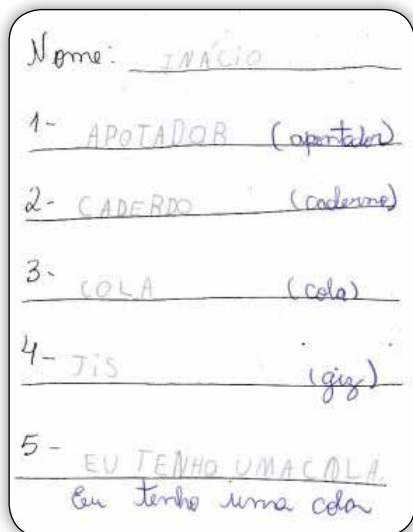 Nome: INÁCIO
1- APOTADOR (apontador)
2- CADERDO (caderno)
3- COLA (cola)
4- JIS (giz)
5- EU TENHO UMACOLA.
Eu tenho uma cola